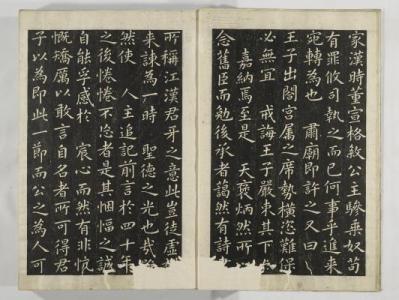 家漢時董宣格殺公主驂乗奴苟
有罪攸司執之而已何事乎進来
宛轉為也　肅廟即許之又曰
王子出閤宮属之席勢橫恣難保
必無宜　戒誨王子嚴束其下
嘉納焉至是　天褒炳然所
念舊臣而勉後承者藹然有詩
所稱江漢君牙之意此豈徒虛
来諫為一時　聖德之光也哉
然使　人主追記前言於四十年
之後惓惓不忘者是其悃愊之誠
自能孚感於　宸心而然有非忼
慨矯厲以敢言自名者所可得君
子以為即此一節而公之為人可